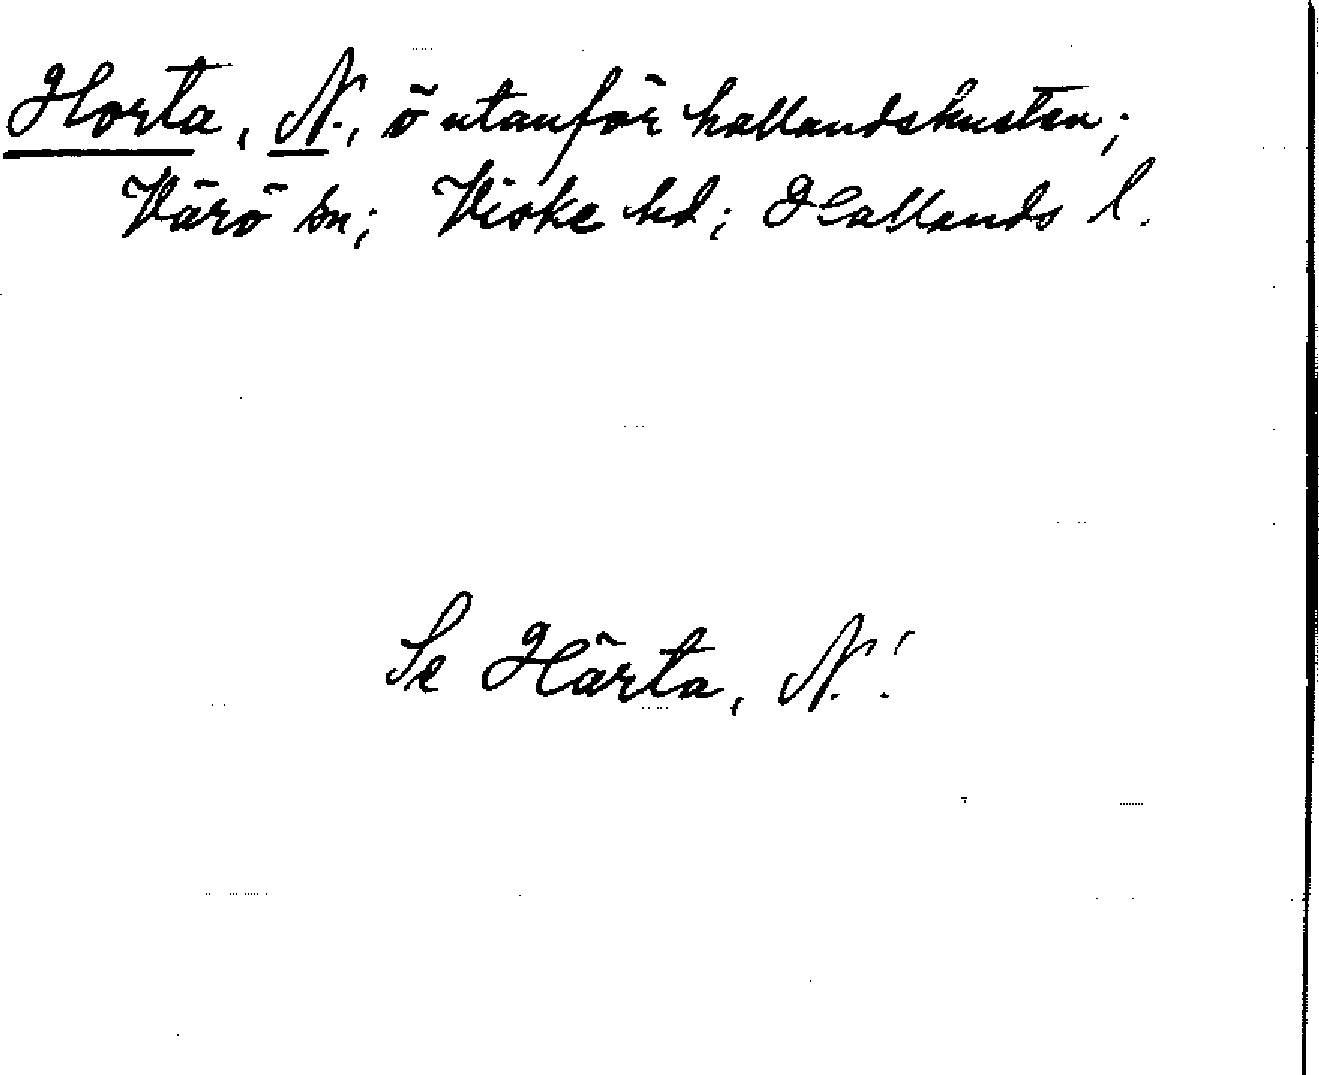 Horta, N., ö utanför hallandskusten;
Värö sn; Viske hd; Hallands l.
Se Härta, N.!